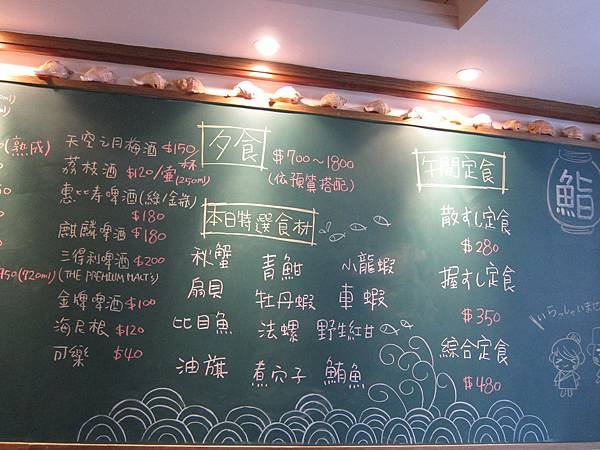 (熟成)
950(720ml)
天空之月梅酒 $150
荔枝酒 $120/杯
(250ml)
惠比寿啤酒(綠/金雞)
$180
麒麟啤酒 $180
三得利啤酒 $200
(THE PREMIUM MALT'S)
金牌啤酒 $100
海尼根 $120
可樂 $40
夕食
$700～1800
(依預算搭配)
本日特選食材
秋蟹 青魽 小龍蝦
扇貝 牡丹蝦 車蝦
比目魚 法螺 野生紅甘
油旗 煮穴子 鮪魚
午間定食
散すし定食
$280
握すし定食
$350
綜合定食
$480
鮨
いらっしゃいませ